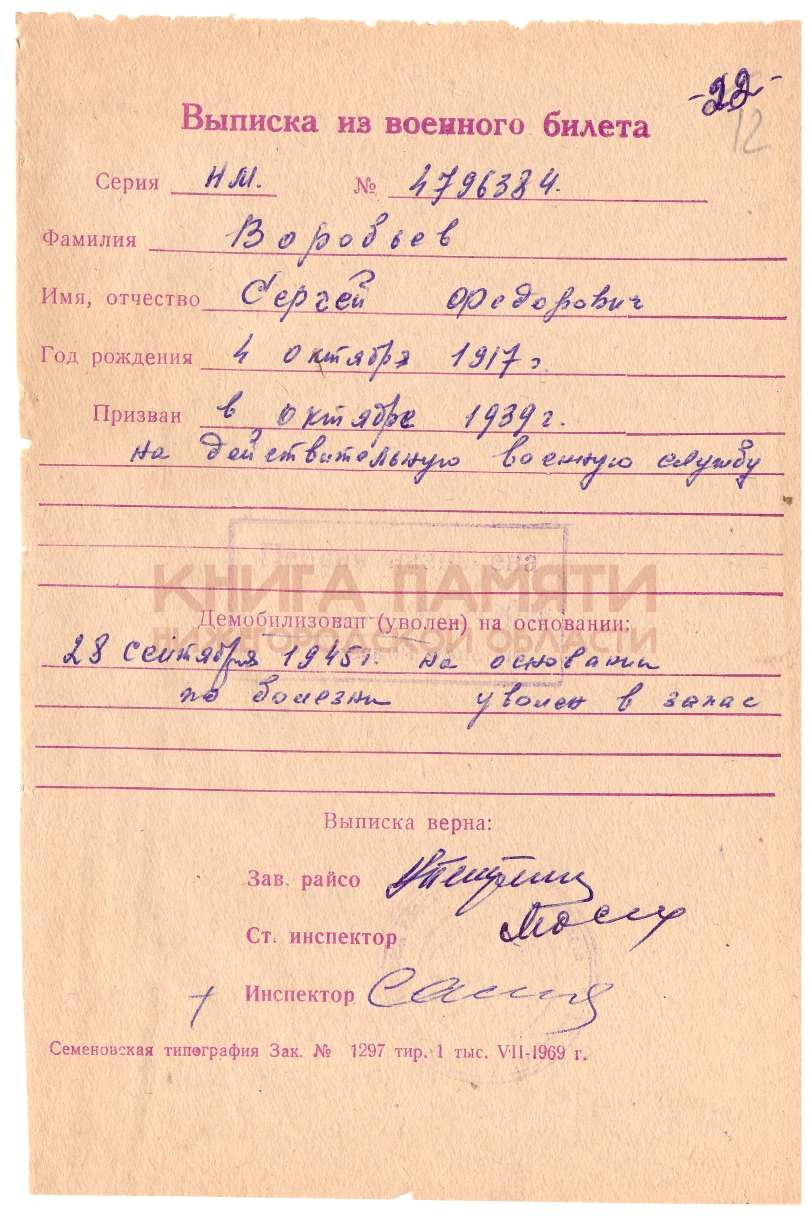 -22-
12
Выписка из военного билета
Серия НМ. № 4796384.
Фамилия Воробьев
Имя, отчество Сергей Федорович
Год рождения 4 октября 1917 г.
Призван в октябре 1939 г.
на действительную военную службу
КНИГА ПАМЯТИ
Демобилизован (уволен) на основании:
НИЖЕГОРОДСКОЙ ОБЛАСТИ
28 сентября 1945 г. на основании
по болезни уволен в запас
Выписка верна:
Зав. райсо
Ст. инспектор
Инспектор
Семеновская типография Зак. № 1297 тир. 1 тыс. VII-1969 г.